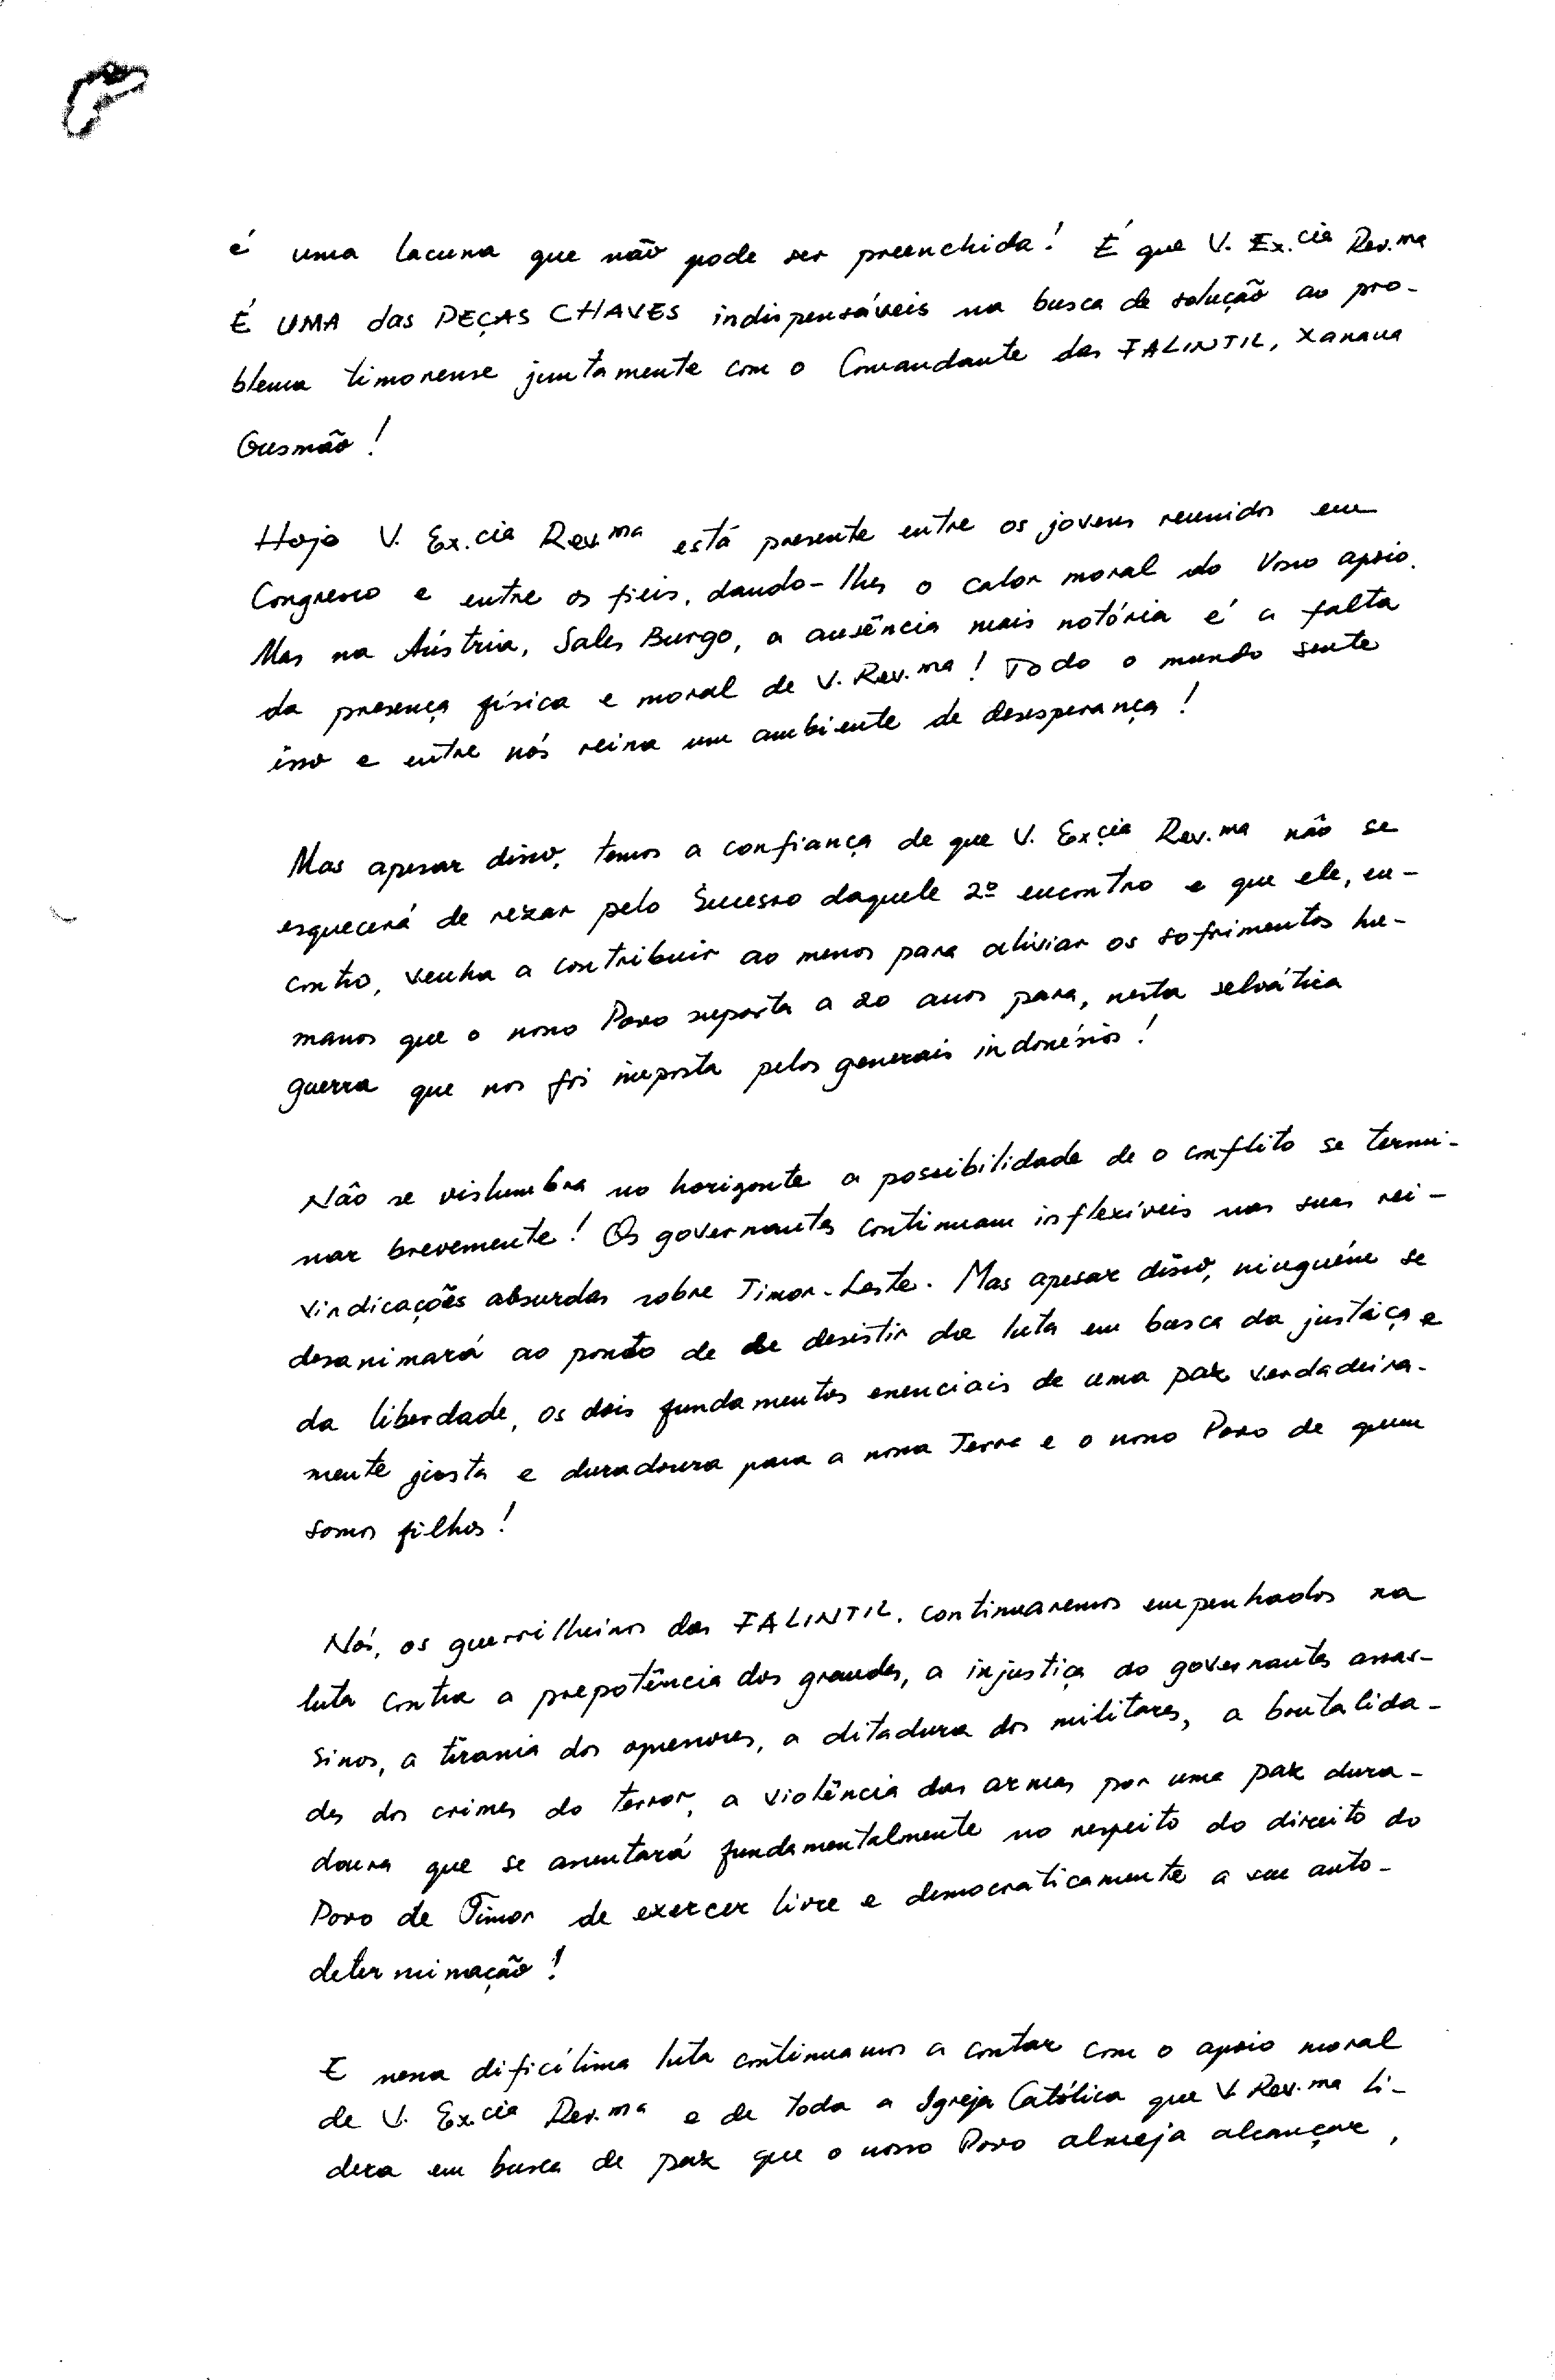 é uma lacuna que não pode ser preenchida! É que V. Ex.cia Rev.ma
É UMA das PEÇAS CHAVES indispensáveis na busca de solução ao pro-
blema timorense juntamente com o Comandante das FALINTIL, Xanana
Gusmão!
Hoje V. Ex.cia Rev.ma está presente entre os jovens reunidos em
Congresso e entre os fiéis, dando-lhes o calor moral do Vosso apoio.
Mas na Áústria, Sales Burgo, a ausência mais notória é a falta
da presença física e moral de V. Rev.ma! Todo o mundo sente
isso e entre nós reina um ambiente de desesperança!
Mas apesar disso, temos a confiança de que V. Exçia Rev.ma não se
esquecerá de rezar pelo Sucesso daquele 2º encontro e que ele, en-
contro, venha a contribuir ao menos para aliviar os sofrimentos hu-
manos que o nosso Povo suporta a 20 anos para, nesta selvática
guerra que nos foi imposta pelos generais indonésios!
Não se vislumbra no horizonte a possibilidade de o conflito se termi-
nar brevemente! Os governantes continuam inflexíveis nas suas rei-
vindicações absurdas sobre Timor-Leste. Mas apesar disso, ninguém se
desanimará ao ponto de de desistir da luta em busca da justiça e
da liberdade, os dois fundamentos essenciais de uma paz verdadeira-
mente justa e duradoura para a nossa Terra e o nosso Povo de quem
somos filhos!
Nós, os guerrilheiros das FALINTIL, continuaremos empenhados na
luta contra a prepotência dos grandes, a injustiça do governantes assas-
sinos, a tirania dos opressores, a ditadura dos militares, a brutalida-
des dos crimes do terror, a violência das armas por uma paz dura-
doura que se assentará fundamentalmente no respeito do direito do
Povo de Timor de exercer livre e democraticamente a sua auto-
determinação!
E nessa dificílima luta continuamos a contar com o apoio moral
de V. Ex.cia Rev.ma e de toda a Igreja Católica que V. Rev.ma li-
dera em busca de paz que o nosso Povo almeja alcançar,